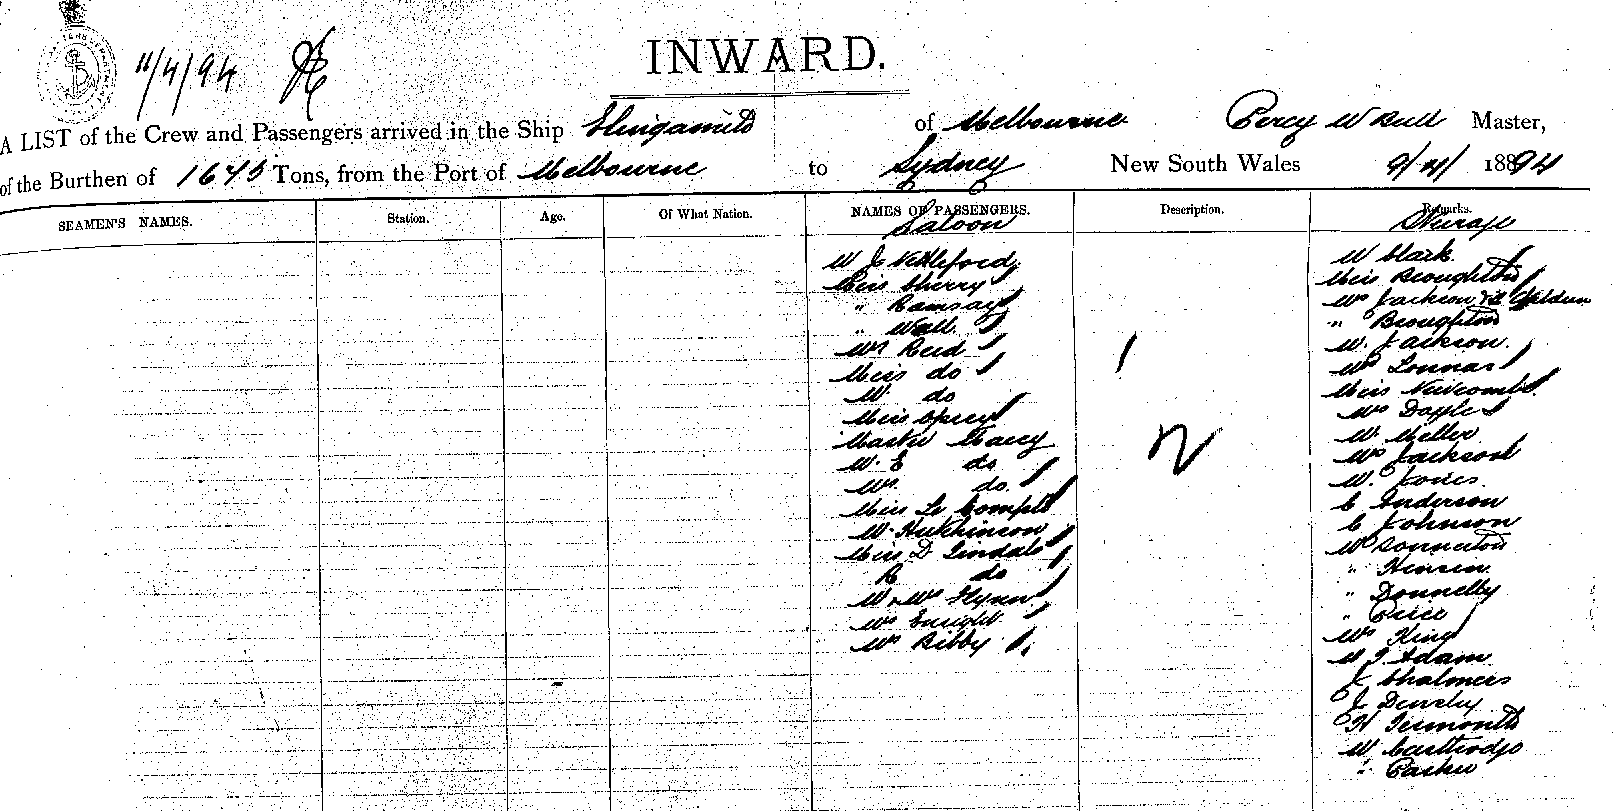 11/4/94
INWARD.
A LIST of the Crew and Passengers arrived in the Ship Elingamite of Melbourne Percy W Bull Master,
of the Burthen of 1675 Tons, from the Port of Melbourne to Sydney New South Wales 9/4/ 1894
SEAMEN'S NAMES. Station. Age. Of What Nation. NAMES OF PASSENGERS. Description. Remarks.
Saloon Steerage
W J Nettleford
Miss Cherry
" Ramsay
" Wall
Mrs Reid
Miss do
Mr do
Miss
Master
Mr E do
Mrs do
Miss Le Compte
Mr Hutchinson
Miss D Lindale
R do
Mr & Mrs Flynn
Mrs Enright
Mrs Bibby
1
2
Mr Clark
Miss Broughton
Mrs Jackson & 2 Children
" Broughton
Mr Jackson
Mrs Lonnas
Miss Newcombe
Mrs Doyle
Mr Meller
Mrs Jackson
Mr Jones
C Anderson
C Johnson
Mr Sonneston
" Hensen
" Donnelly
" Price
Mrs King
Adam
J Chalmers
J
H
Mr
" Parker